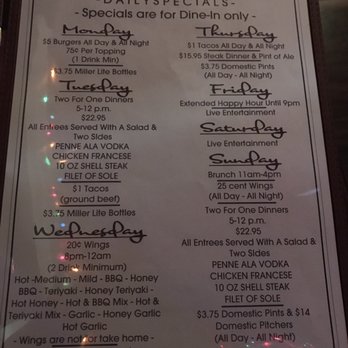 - D A I L Y S P E C I A L S -
- Specials are for Dine-In only -
Monday
$5 Burgers All Day & All Night
75¢ Per Topping
(1 Drink Min)
$3.75 Miller Lite Bottles
Tuesday
Two For One Dinners
5-12 p.m.
$22.95
All Entrees Served With A Salad &
Two Sides
PENNE ALA VODKA
CHICKEN FRANCESE
10 OZ SHELL STEAK
FILET OF SOLE
$1 Tacos
(ground beef)
$3.75 Miller Lite Bottles
Wednesday
20¢ Wings
8pm-12am
(2 Drink Minimum)
Hot -Medium - Mild - BBQ - Honey
BBQ - Teriyaki - Honey Teriyaki -
Hot Honey - Hot & BBQ Mix - Hot &
Teriyaki Mix - Garlic - Honey Garlic
Hot Garlic
- Wings are not for take home -
Thursday
$1 Tacos All Day & All Night
$15.95 Steak Dinner & Pint of Ale
$3.75 Domestic Pints
(All Day - All Night)
Friday
Extended Happy Hour Until 9pm
Live Entertainment
Saturday
Live Entertainment
Sunday
Brunch 11am-4pm
25 cent Wings
(All Day - All Night)
Two For One Dinners
5-12 p.m.
$22.95
All Entrees Served With A Salad &
Two Sides
PENNE ALA VODKA
CHICKEN FRANCESE
10 OZ SHELL STEAK
FILET OF SOLE
$3.75 Domestic Pints & $14
Domestic Pitchers
(All Day - All Night)